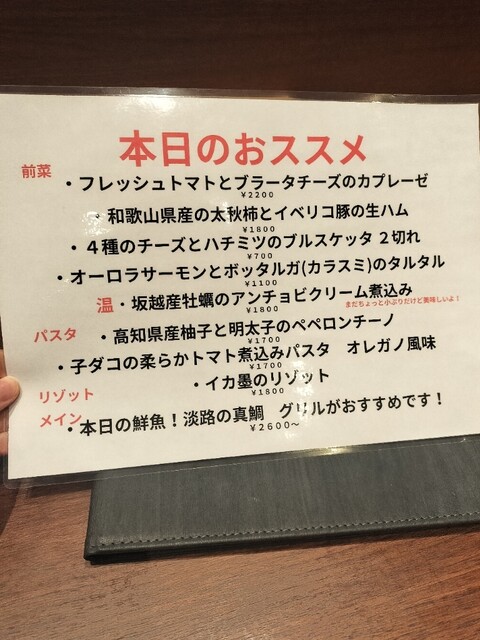 本日のおススメ
前菜
・フレッシュトマトとブラータチーズのカプレーゼ
¥2200
・和歌山県産の太秋柿とイベリコ豚の生ハム
¥1800
・４種のチーズとハチミツのブルスケッタ ２切れ
¥700
・オーロラサーモンとボッタルガ(カラスミ)のタルタル
¥1100
温・坂越産牡蠣のアンチョビクリーム煮込み
¥1800
まだちょっと小ぶりだけど美味しいよ！
パスタ
・高知県産柚子と明太子のペペロンチーノ
¥1700
・子ダコの柔らかトマト煮込みパスタ　オレガノ風味
¥1700
リゾット
・イカ墨のリゾット
¥1800
メイン
・本日の鮮魚！淡路の真鯛　グリルがおすすめです！
¥2600～